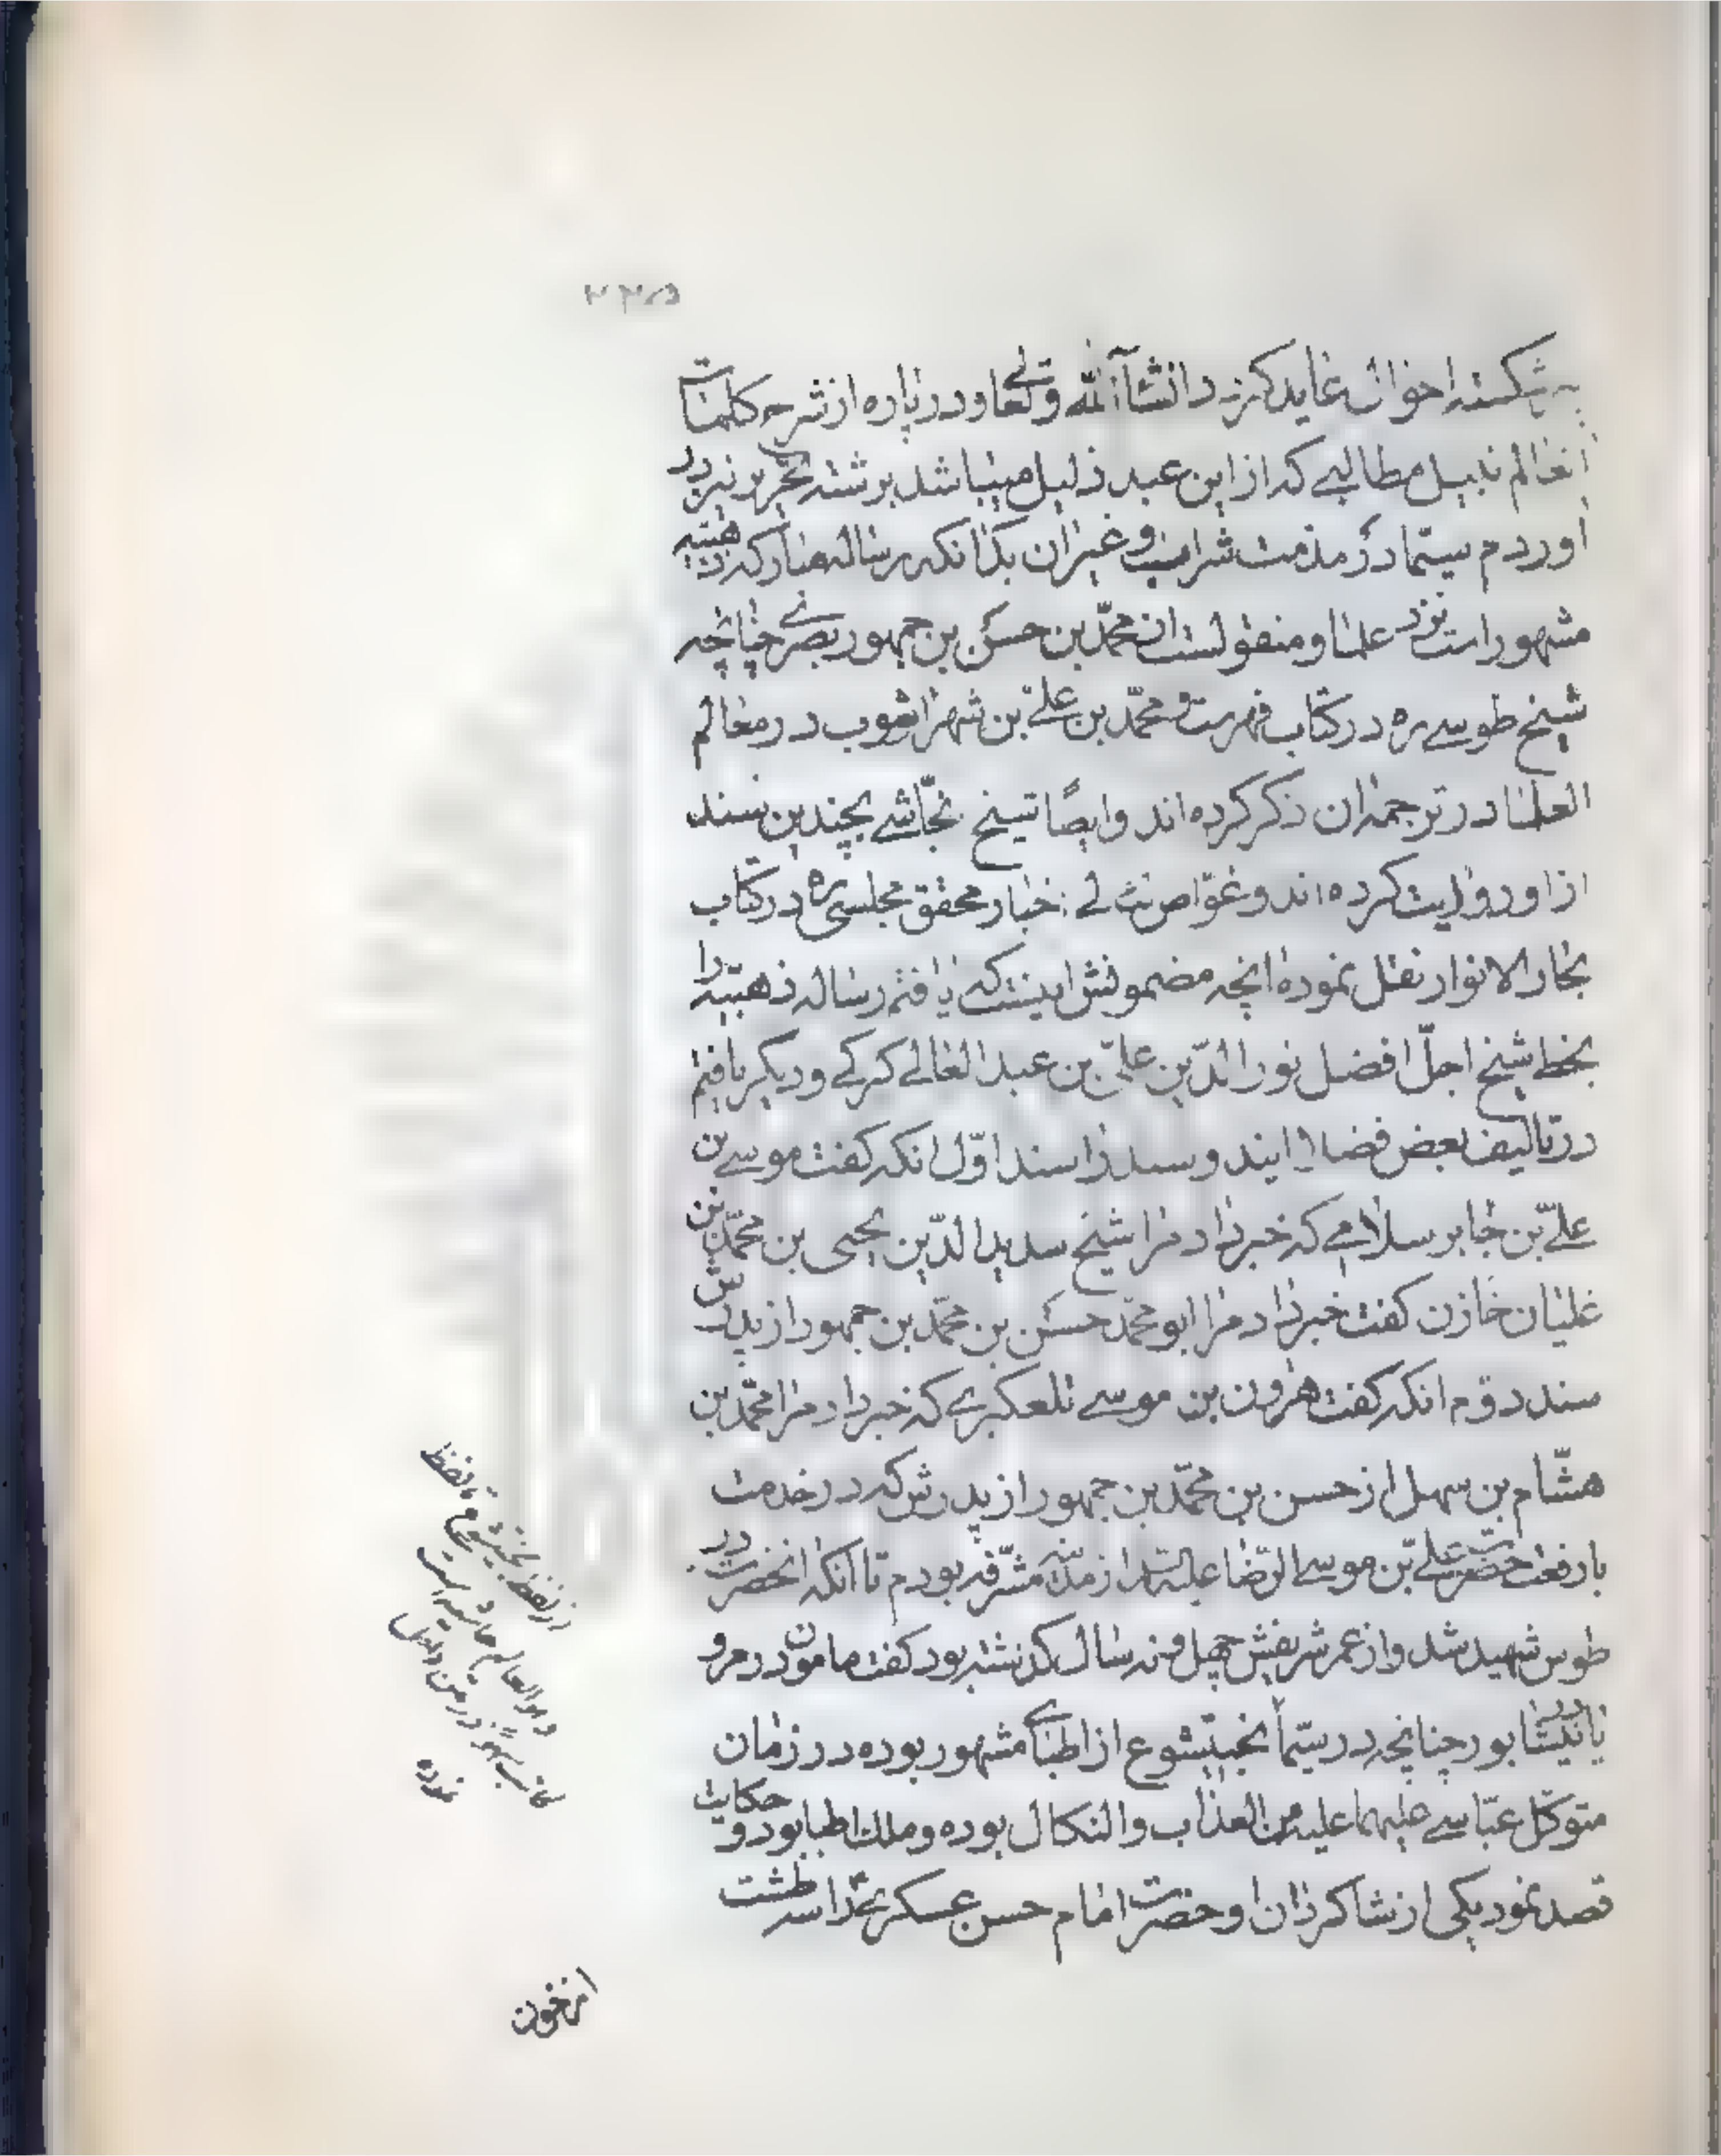 ۲۲۵
به شکسته احوال عاید کردد انشآءالله وتعالی و در پاره از شرح کلمات
انعالم نبیل مطالبی که از این عبد ذلیل میباشد برشته تحریر نیز در
اوردم سیما در مذمت شراب و غیران بدانکه رساله مبارکه ذهبیه
مشهور است نزد علما و منقولست از محمّد بن حسن بن جمهور بصری چنانچه
شیخ طوسی ره در کتاب فهرست و محمّد بن علی بن شهراشوب در معالم
العلما در ترجمه ان ذکر کرده اند و ایضًا شیخ نجّاشی بچندین سند
از او روایت کرده اند و غوّاص لئالی اخبار محقق مجلسی ره در کتاب
بحار الانوار نقل نموده انچه مضمونش اینست که یافتم رساله ذهبیّه را
بخط شیخ اجلّ افضل نور الدّین علیّ بن عبد العالی کرکی و دیگر یافتم
در تالیف بعض فضلا ایند و سند را سند اوّل انکه گفت موسی بن
علیّ بن جابر سلامی که خبر داد مرا شیخ سدید الدّین یحیی بن محمّد بن
علیان خازن گفت خبر داد مرا ابو محمّد حسن بن محمّد بن جمهور از پدرش
سند دوّم انکه گفت هرون بن موسی تلعکبری که خبر داد مرا محمّد بن
هشّام بن سهل از حسن بن محمّد بن جمهور از پدرش که در خدمت
با رفعت حضرت علیّ بن موسی الرّضا علیه از مدینه مشرّف بودم تا انکه انحضرت در
طوس شهید شد و از عمر شریفش چهل و نه سال گذشته بود گفت مامون در مرو
یا در نیشابور چنانچه در سیّما بخیتشوع از اطبّای مشهور بوده در زمان
متوکّل عبّاسی علیهما علیه من العذاب والنکال بوده و ملک اطبا بود و حکایت
قصد نمود یکی از شاکردان او حضرت امام حسن عسکری را سه طشت
از خون
از لفظ بخیتشوع تا لفظ
والعالم حاشیه است
کاتب سهوًا در متن داخل
نموده